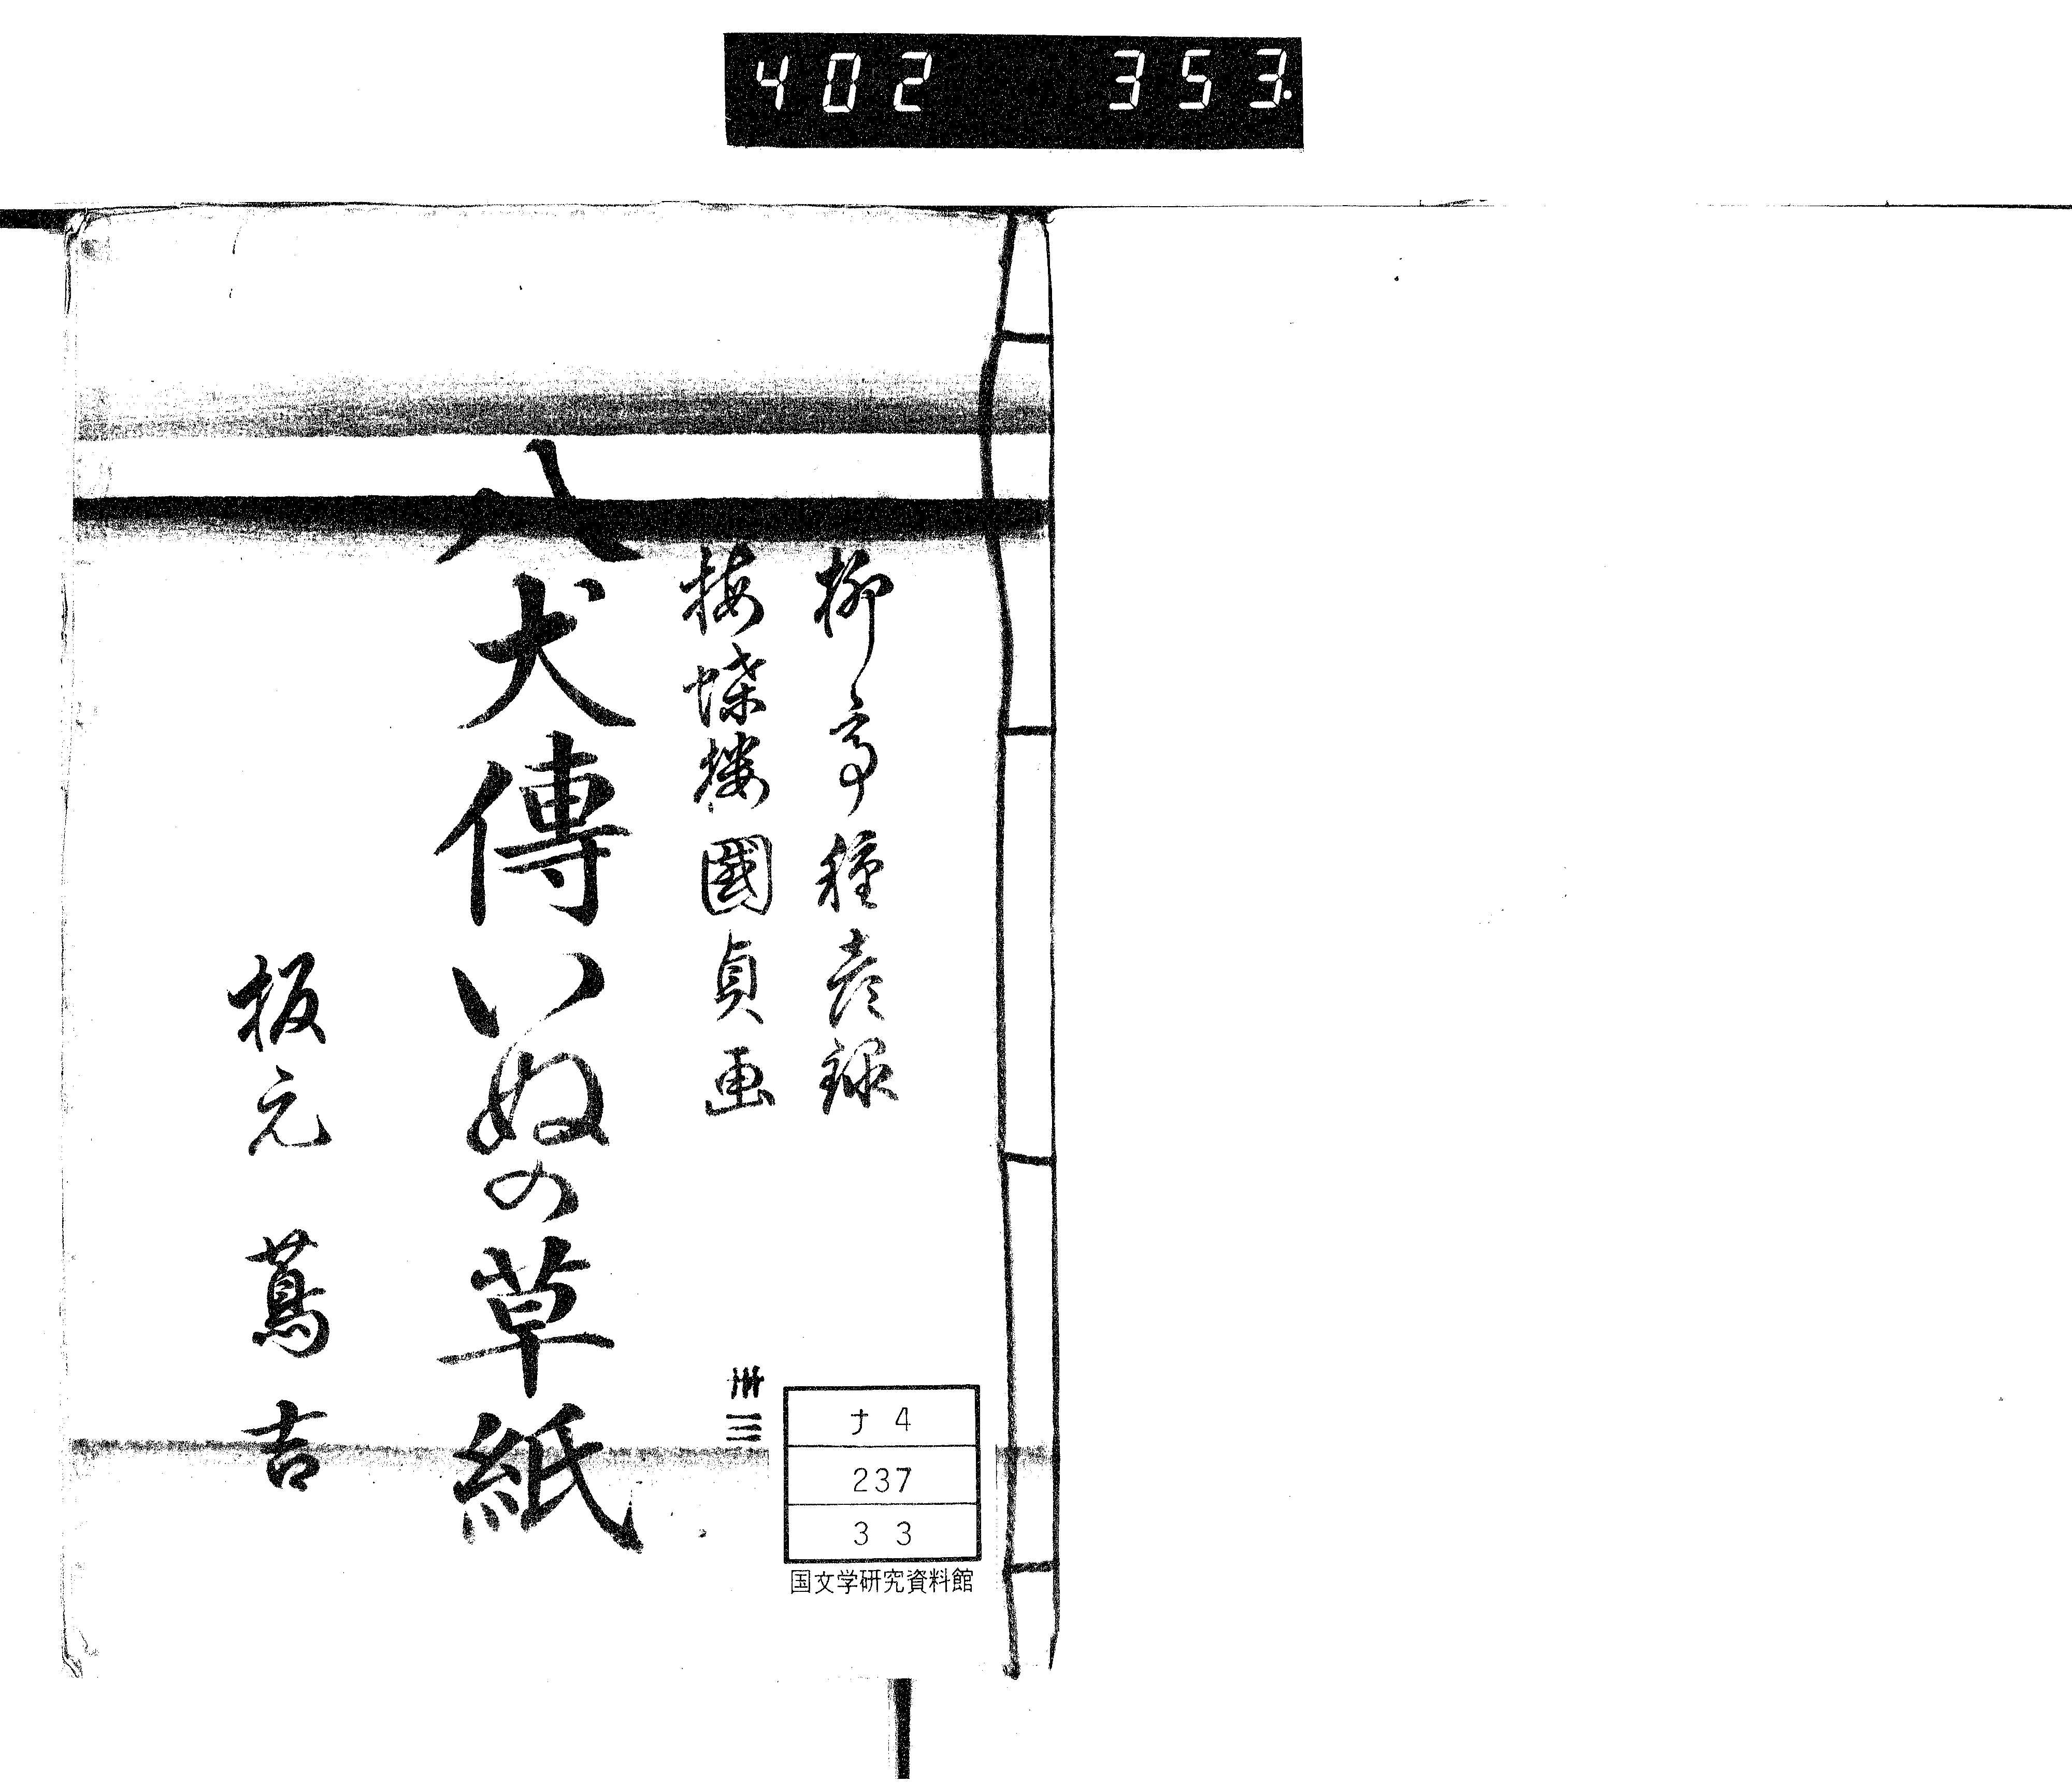 402 353.
柳亭種彦録
梅蝶楼國貞画
八犬傳いぬの草紙
板元 蔦吉
卅三
ナ 4
237
3 3
国文学研究資料館